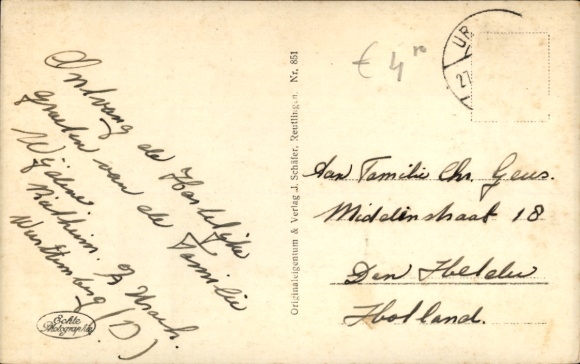 Ontvang de Hartelijke
groeten van de Familie
Rietheim.
Württemberg (D)
Echte
Photographie
Originaleigentum & Verlag J. Schäfer, Reutlingen. Nr. 851
€ 4
UR
27
Aan Familie Chr. Geus.
Middenstraat 18
Den Helder
Holland.